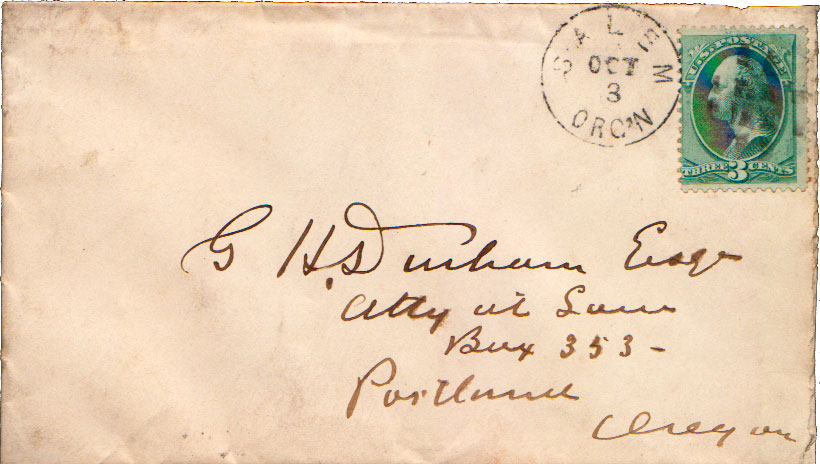 SALEM
OCT
3
ORG'N
U.S. POSTAGE
THREE 3 CENTS
G H. Durham Esqr
Atty at Law
Box 353 -
Portland
Oregon